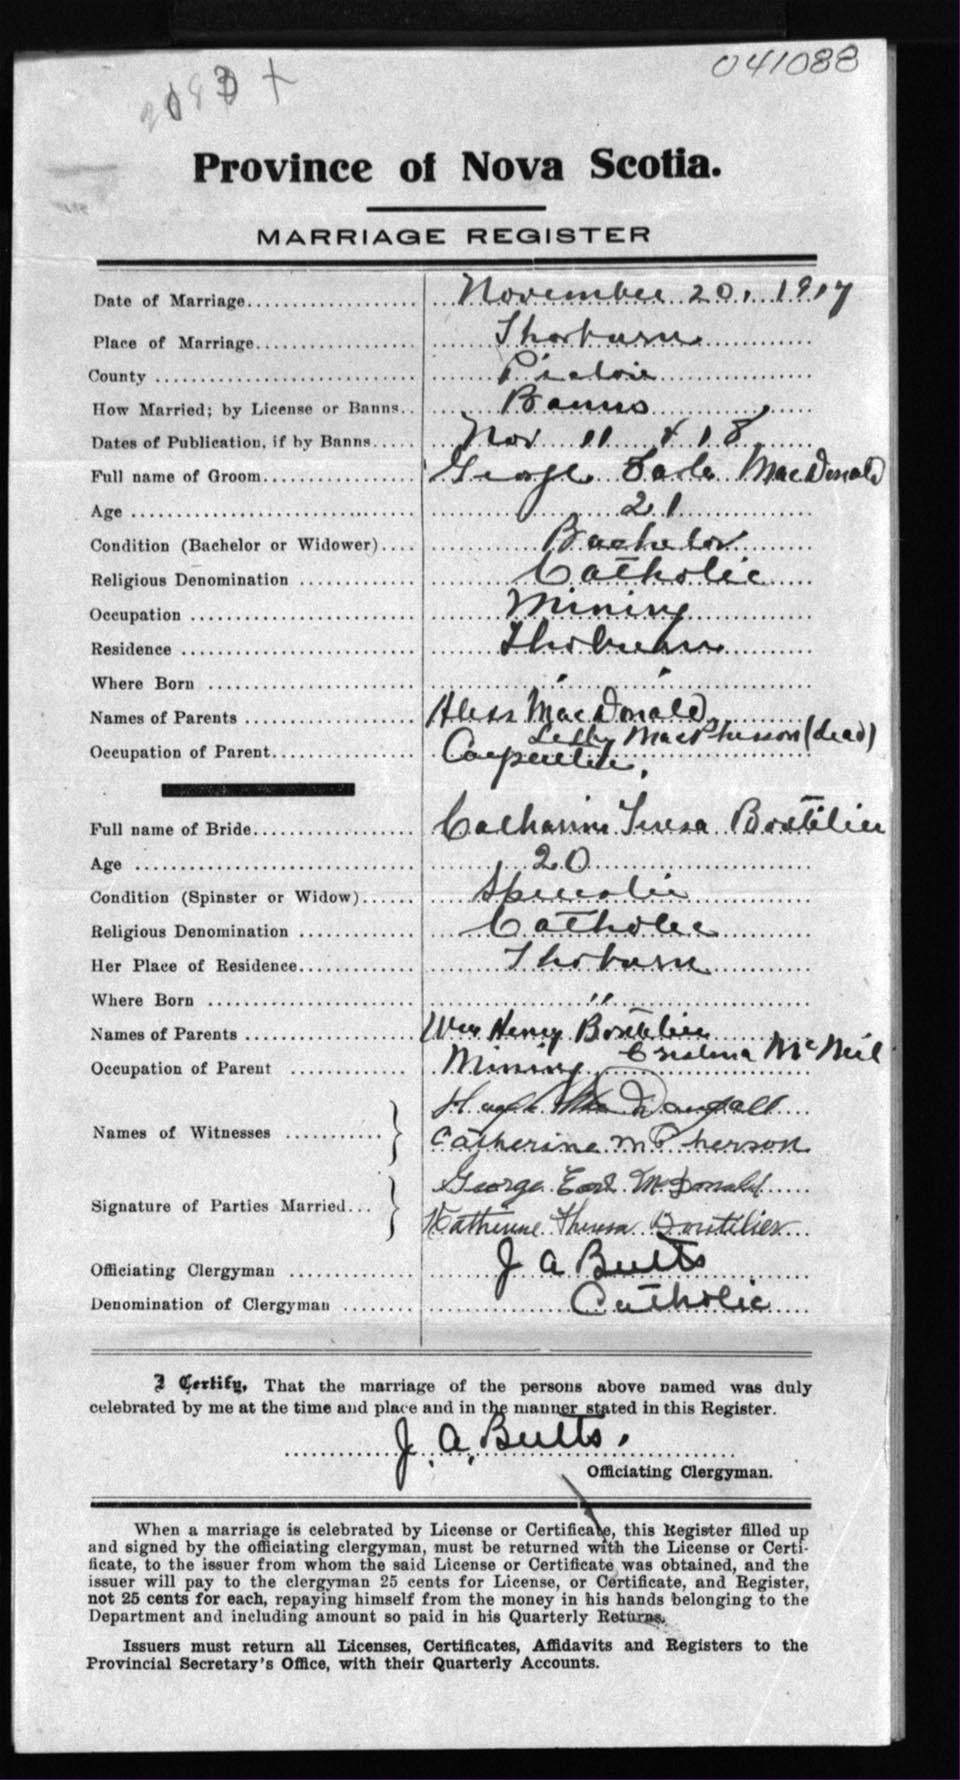 041088
Province of Nova Scotia.
MARRIAGE REGISTER
Date of Marriage.................... November 20, 1917
Place of Marriage.................. Thorburn
County .............................. Pictou
How Married; by License or Banns.. Banns
Dates of Publication, if by Banns..... Nov 11 & 18
Full name of Groom.................. George Earle MacDonald
Age .................................. 21
Condition (Bachelor or Widower).... Bachelor
Religious Denomination .............. Catholic
Occupation .......................... Mining
Residence ............................ Thorburn
Where Born .......................... " "
Names of Parents .................... MacDonald
MacPherson (dead)
Occupation of Parent.................. Carpenter
Full name of Bride.................... Catharine Teresa Boutilier
Age .................................. 20
Condition (Spinster or Widow)...... Spinster
Religious Denomination .............. Catholic
Her Place of Residence.............. Thorburn
Where Born .......................... "
Names of Parents .................... Wm Henry Boutilier
Cristina McNeil
Occupation of Parent ................ Mining
Names of Witnesses ............ } Hugh MacDougall
Catherine McPherson
Signature of Parties Married... } George Earl McDonald
Katherine Theresa Boutilier
Officiating Clergyman ................ J A Butts
Denomination of Clergyman .......... Catholic
I Certify, That the marriage of the persons above named was duly
celebrated by me at the time and place and in the manner stated in this Register.
J. A. Butts.
Officiating Clergyman.
When a marriage is celebrated by License or Certificate, this Register filled up
and signed by the officiating clergyman, must be returned with the License or Certi-
ficate, to the issuer from whom the said License or Certificate was obtained, and the
issuer will pay to the clergyman 25 cents for License, or Certificate, and Register,
not 25 cents for each, repaying himself from the money in his hands belonging to the
Department and including amount so paid in his Quarterly Returns.
Issuers must return all Licenses, Certificates, Affidavits and Registers to the
Provincial Secretary's Office, with their Quarterly Accounts.